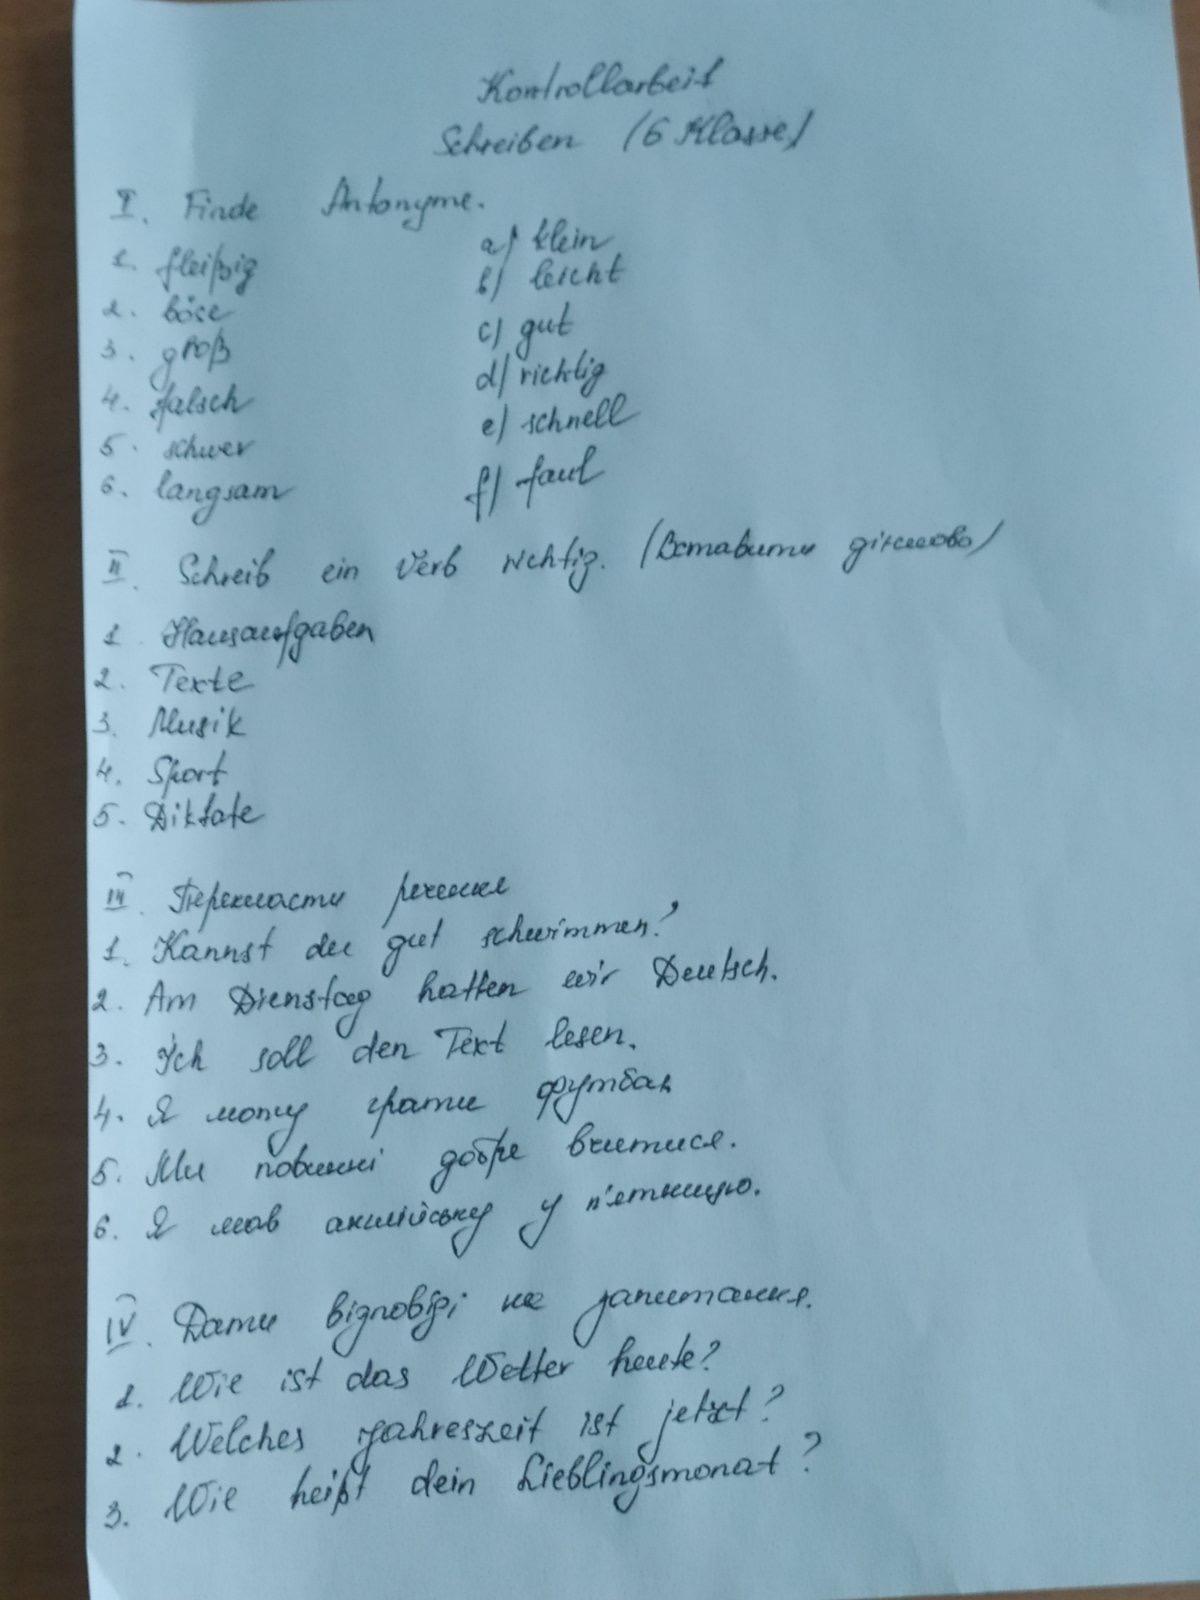 Kontrollarbeit
Schreiben (6 Klasse)
I. Finde Antonyme.
1. fleißig a) klein
2. böse b) leicht
3. groß c) gut
4. falsch d) richtig
5. schwer e) schnell
6. langsam f) faul
II. Schreib ein Verb richtig. (Вставити дієслово)
1. Hausaufgaben
2. Texte
3. Musik
4. Sport
5. Diktate
III. Перекласти речення
1. Kannst du gut schwimmen?
2. Am Dienstag hatten wir Deutsch.
3. Ich soll den Text lesen.
4. Я можу грати футбол
5. Ми повинні добре вчитися.
6. Я мав англійську у п'ятницю.
IV. Дати відповіді на запитання.
1. Wie ist das Wetter heute?
2. Welches Jahreszeit ist jetzt?
3. Wie heißt dein Lieblingsmonat?